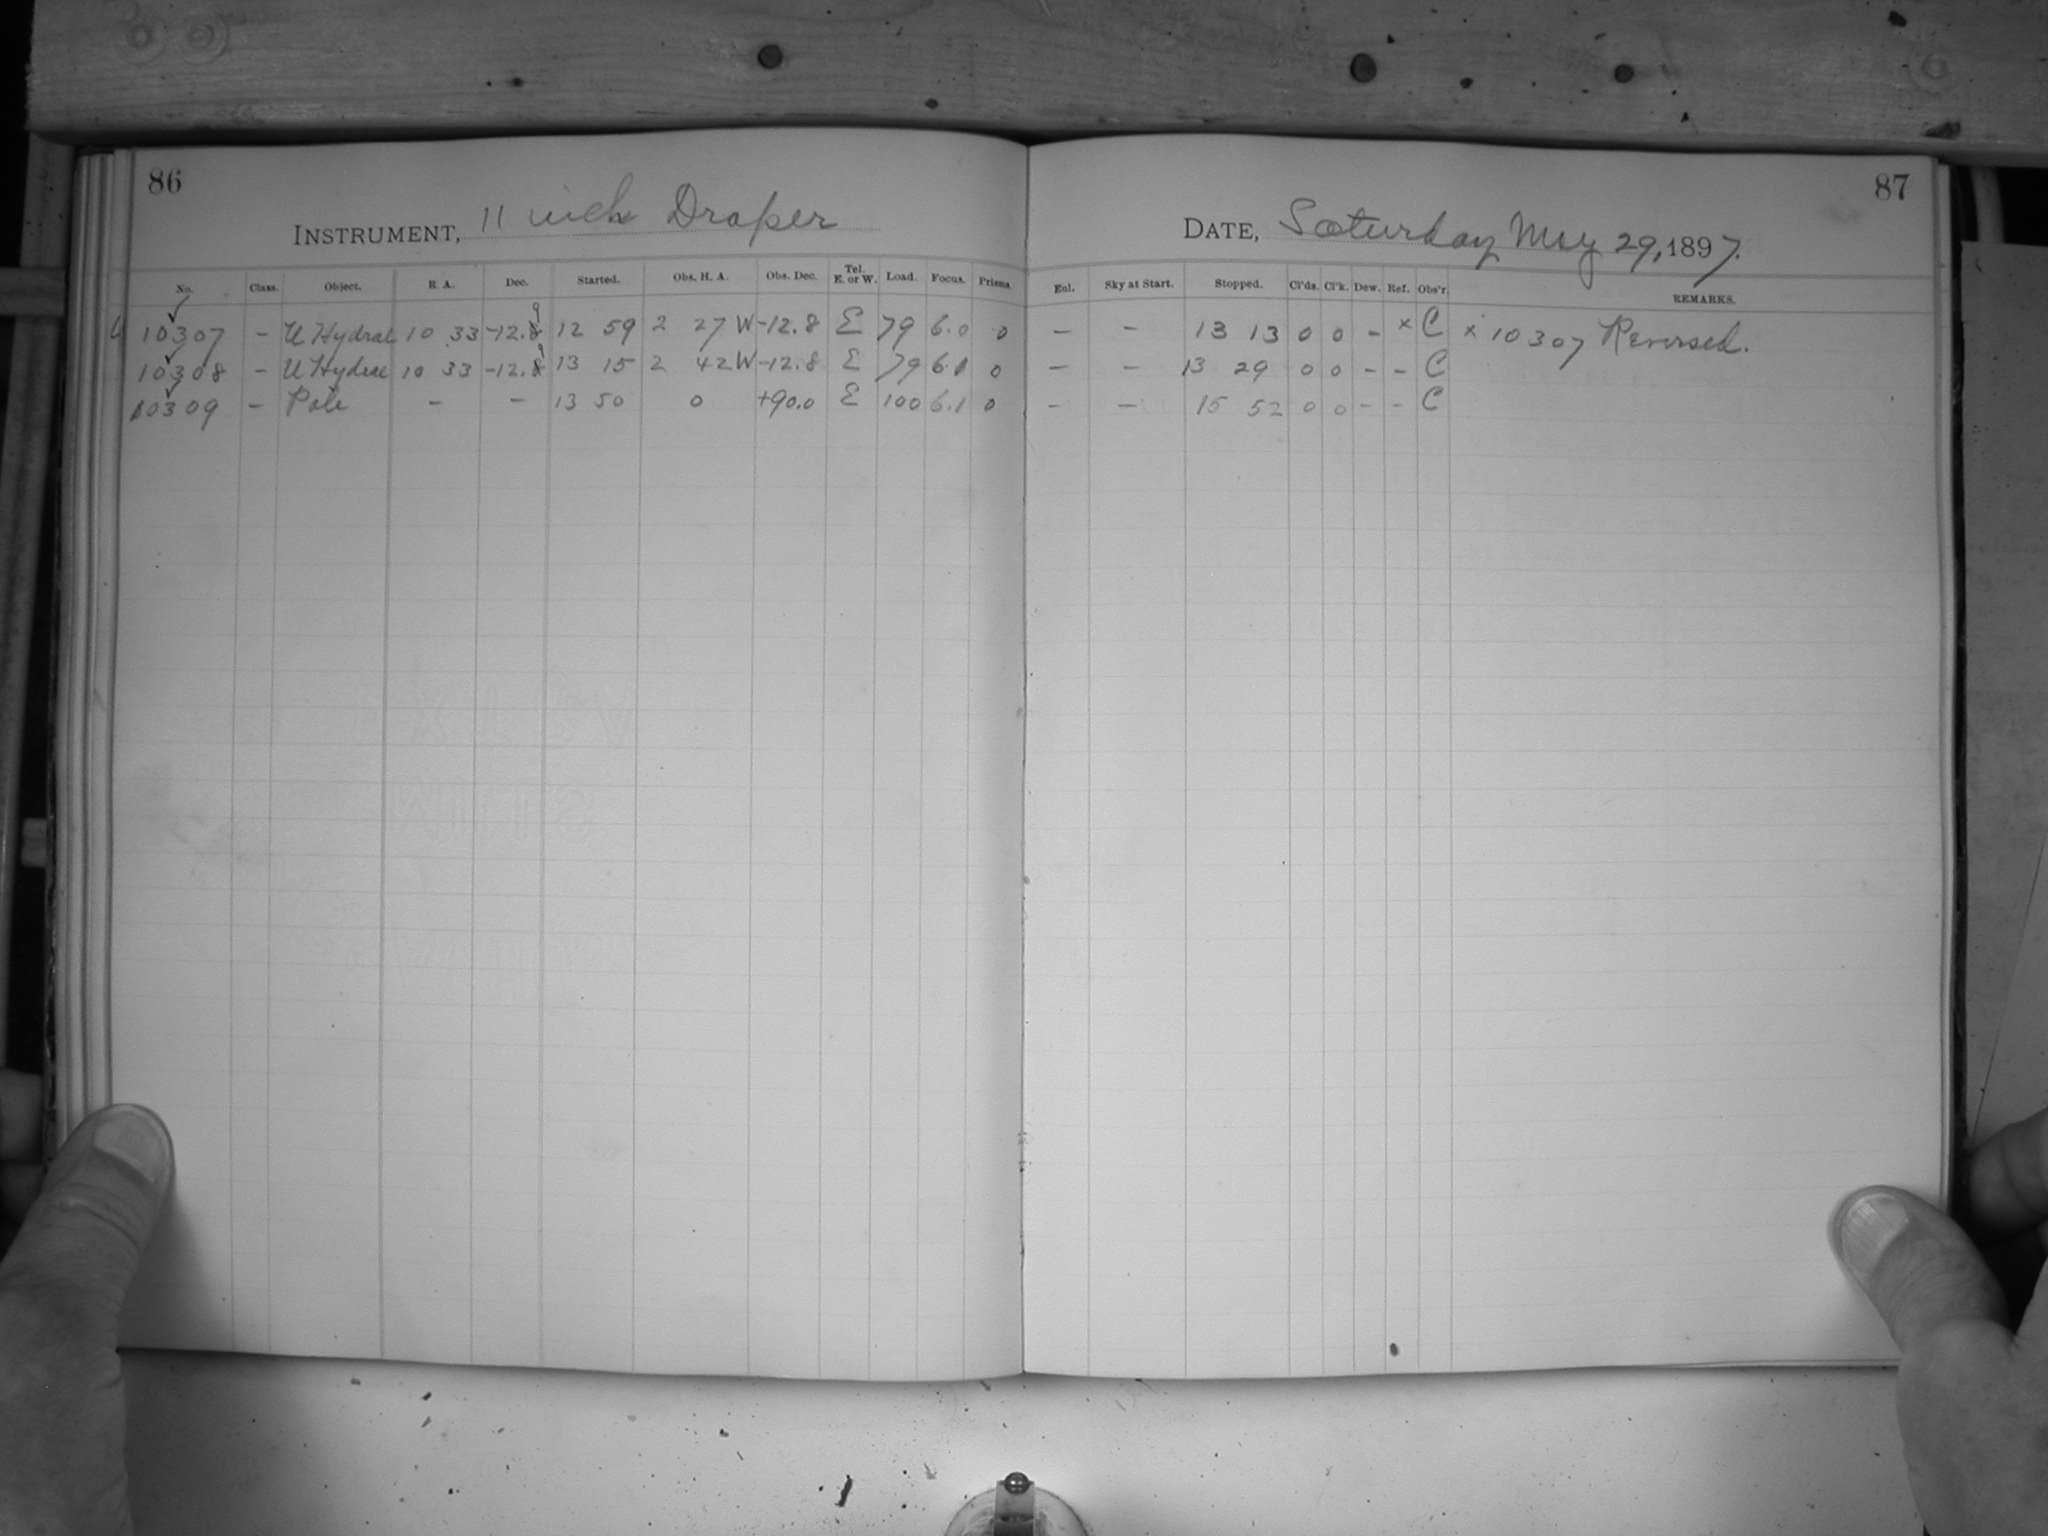 86
INSTRUMENT, 11 inch Draper
No. Class. Object. R. A. Dec. Started. Obs. H. A. Obs. Dec. Tel. E. or W. Load. Focus. Prisms.
10307 - U Hydrae 10 33 -12.9 12 59 2 27 W -12.8 E 79 6.0 0
10308 - U Hydrae 10 33 -12.9 13 15 2 42 W -12.8 E 79 6.1 0
10309 - Pole - - 13 50 0 +90.0 E 100 6.1 0
87
DATE, Saturday May 29, 1897.
Enl. Sky at Start. Stopped. Cl'ds. Cl'k. Dew. Ref. Obs'r. REMARKS.
- - 13 13 0 0 - x C x 10307 Reversed.
- - 13 29 0 0 - - C
- - 15 52 0 0 - - C